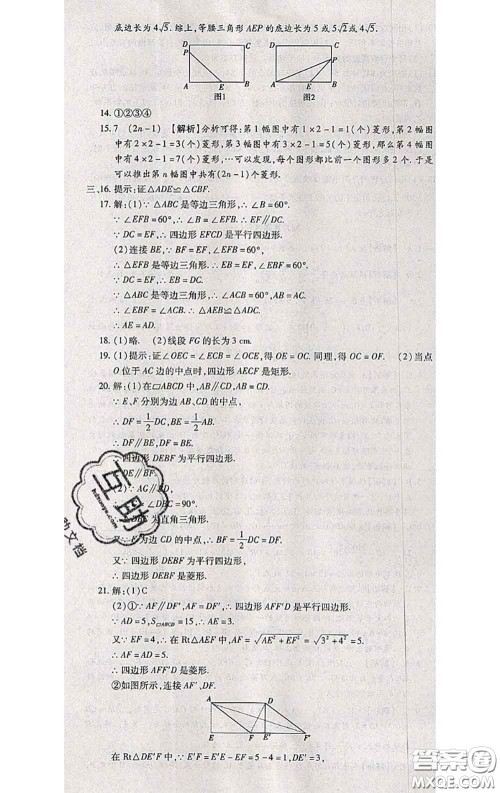 底边长为4√5. 综上,等腰三角形AEP的底边长为5或5√2或4√5.
D C D C
P P
A E B A E B
图1 图2
14. ①②③④
15. 7 (2n-1) 【解析】分析可得:第1幅图中有1×2-1=1(个)菱形,第2幅图
中有2×2-1=3(个)菱形,第3幅图中有3×2-1=5(个)菱形,那么第4幅
图中有4×2-1=7(个)菱形,…可以发现,每个图形都比前一个图形多2个. 于是
可以推出第n幅图中共有(2n-1)个菱形.
三、16. 提示:证△ADE≌△CBF.
17. 解:(1)∵△ABC是等边三角形,∴∠B=60°.
∵∠EFB=60°,∴∠B=∠EFB. ∴EF∥DC.
∵DC=EF,∴四边形EFCD是平行四边形.
(2)连接BE,∵BF=EF,∠EFB=60°,
∴△EFB是等边三角形.∴EB=EF,∠EBF=60°.
∵DC=EF,∴EB=DC.
∵△ABC是等边三角形,∴∠ACB=60°,AB=AC.
∴∠EBF=∠ACB. ∴△AEB≌△ADC.
∴AE=AD.
18. (1)略. (2)线段FG的长为3 cm.
19. (1)提示:证∠OEC=∠ECB=∠OCE,得OE=OC. 同理,得OC=OF. (2)当点
O位于AC边的中点时,四边形AECF是矩形.
20. 解:(1)在▱ABCD中,AB∥CD,AB=CD.
∵E、F分别为边AB、CD的中点,
∴DF=1/2DC,BE=1/2AB.
∴DF∥BE,DF=BE.
∴四边形DEBF为平行四边形.
∴DE∥BF.
(2)∵AG∥BD,
∴∠G=∠DBC=90°.
∴△DBC为直角三角形.
又∵F为边CD的中点,∴BF=1/2DC=DF.
又∵四边形DEBF为平行四边形,
∴四边形DEBF是菱形.
21. 解:(1)C
(2)①∵AF∥DF′,AF=DF′,∴四边形AFF′D是平行四边形.
∵AD=5,S▱ABCD=15,∴AE=3.
又∵EF=4,∴在Rt△AEF中,AF=√(AE²+EF²)=√(3²+4²)=5.
∴AF=AD=5.
又∵四边形AFF′D是平行四边形,
∴四边形AFF′D是菱形.
②如图所示,连接AF′、DF.
A D
E F E′ F′
在Rt△DE′F中,∵E′F=E′E-EF=5-4=1,DE′=3,
互助
文档
答案圈
MXQE.COM